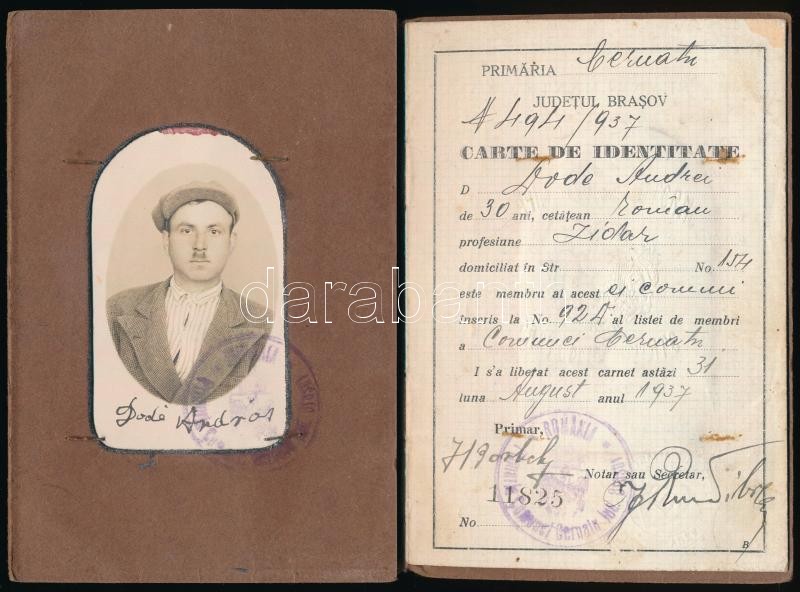 Dodé András
PRIMĂRIA Cernatu
JUDEȚUL BRAȘOV
N 494/937
CARTE DE IDENTITATE
D Dode Andrei
de 30 ani, cetățean român
profesiune Zidar
domiciliat în Str No. 154
este membru al acest ei comuni
înscris la No. 92 al listei de membri
a Comunei Cernatu
I s'a liberat acest carnet astăzi 31
luna August anul 1937
Primar,
Notar sau Secretar,
11825
No.
B
ROMÂNIA
darabanth